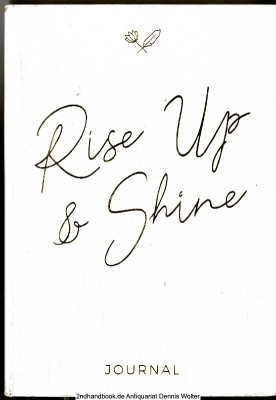 Rise Up
& Shine
JOURNAL
2ndhandbook.de Antiquariat Dennis Wolter